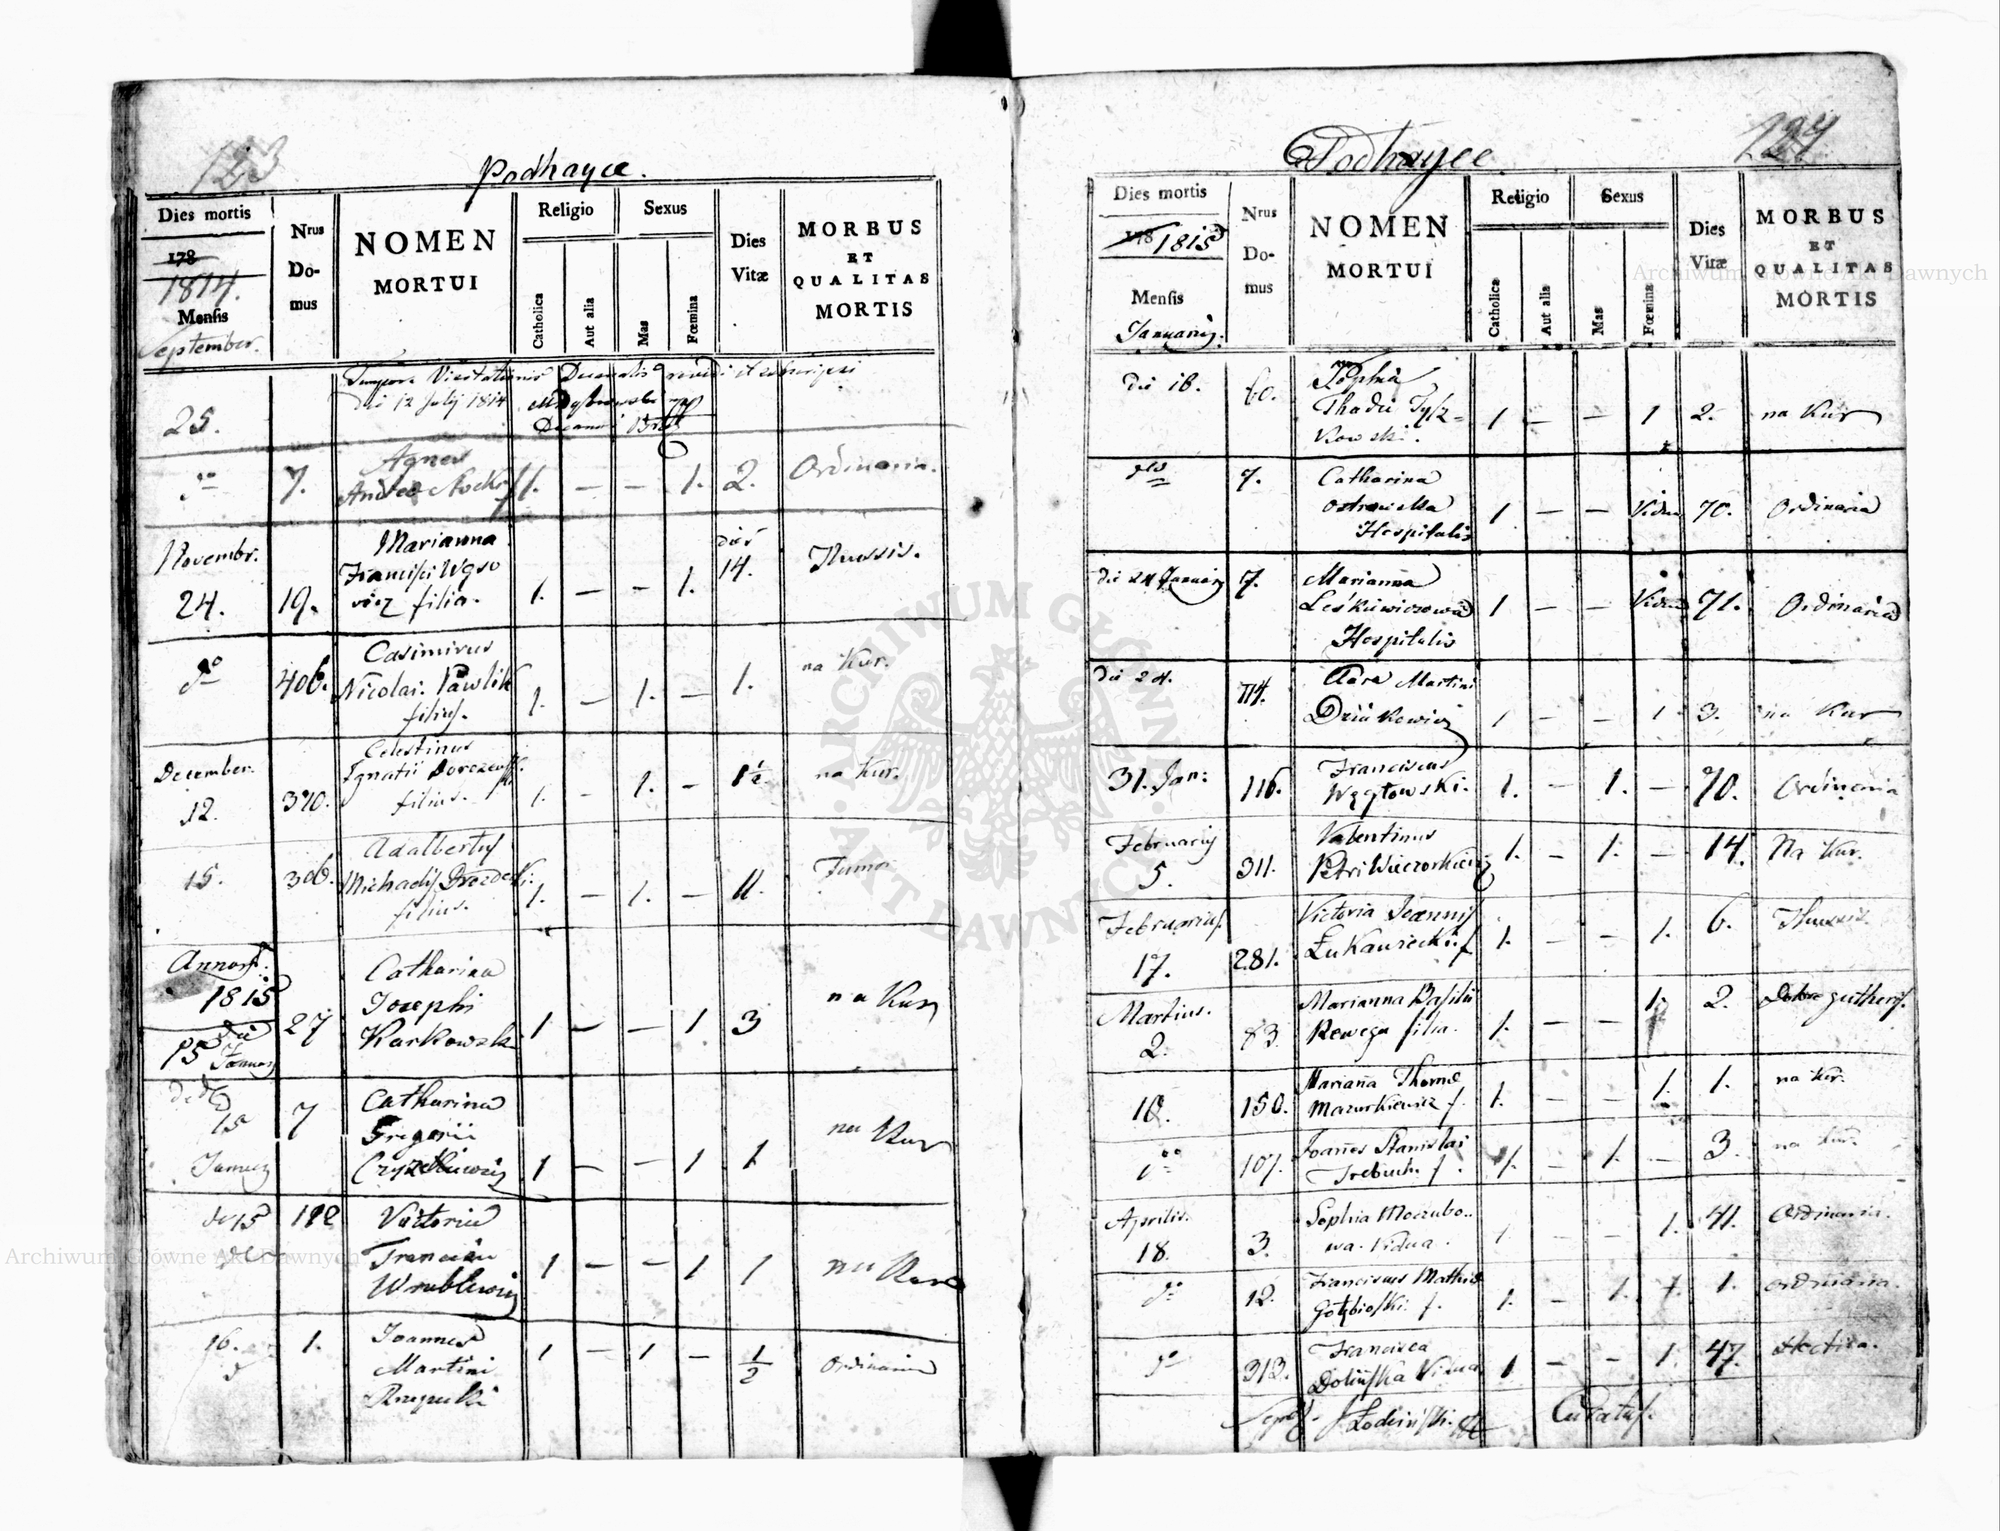 123
Podhayce.
Dies mortis
178
1814.
Mensis
September.
Nrus
Do-
mus
NOMEN
MORTUI
Religio
Catholica
Aut alia
Sexus
Mas
Fœmina
Dies
Vitæ
MORBUS
ET
QUALITAS
MORTIS
Tempore Visitationis Decanalis
die 12 July 1814
25.
do 7. Agnes
Andreæ 1. — — 1. 2. Ordinaria.
Novembr. Marianna dies
24. 19. Francisci Wąso
wicz filia. 1. — — 1. 14. Tussis.
do 406. Casimirus
Nicolai Pawlik
filius. 1. — 1. — 1. na Kur.
December. Celestinus
12. 370. Ignatii
filius. 1. — 1. — 1½ na Kur.
15. 306. Adalbertus
Michaelis
filius. 1. — 1. — 11.
Annus
1815
die
15 Januar 27 Catharina
Josephi
Karkowski 1 — — 1 3 na Kur
15 7 Catharina
Gregorii
1 — — 1 1 na Kur
de 15 192 Victoria
Francisci
Wrublewicz 1 — — 1 1 na Kur
16. 1. Joannes
Martini
1 — 1 — ½ Ordinaria
124
Podhayce
Dies mortis
178 1815
Mensis
Januarij.
Nrus
Do-
mus
NOMEN
MORTUI
Religio
Catholica
Aut alia
Sexus
Mas
Fœmina
Dies
Vitæ
MORBUS
ET
QUALITAS
MORTIS
die 18. 60. Sophia
Thadei Tysz=
kowski. 1 — — 1 2. na Kur
7. Catharina
Hospitalis 1. — — Vidua 70. Ordinaria
die 24 Januarij 7. Marianna
Leśkiewiczowa
Hospitalis 1 — — Vidua 71. Ordinaria
die 24. 114. Clara Martini
1 — — 1. 3. na Kur
31. Jan: 116. Franciscus
Węgłowski. 1. — 1. — 70. Ordinaria
Februarij
5. 311. Valentinus
Petri Wieczorkiewicz 1. — 1. — 14. Na Kur.
Februarius.
17. 281. Victoria Joannis
Łukasiecki f. 1. — — 1. 6. Tussis.
Martius.
2. 83. Marianna Basilii
Rewega filia. 1. — — 1. 2.
10. 150. Marianna Thomæ
Mazurkiewicz f. 1. — — 1. 1. na Kur.
do 107. Joannes Stanislai
Trebuch. f. 1. — 1. — 3. na Kur.
Aprilis.
18. 3. Sophia Moczubo..
wa. Vidua. 1. — — 1. 41. Ordinaria.
do 12. Franciscus Mathiæ
Gołębioski. f. 1. — 1. 1. Ordinaria.
do 313. Francisca
Dolińska Vidua. 1. — — 1. 47. Hectica.
Curatus.
Archiwum Główne Akt Dawnych
Archiwum Główne Akt Dawnych
ARCHIWUM GŁÓWNE
AKT DAWNYCH